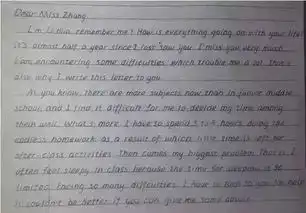 Dear Miss Zhang,
I'm Li Hua, remember me? How is everything going on with your life?
It's almost half a year since I last saw you. I miss you very much.
I am encountering some difficulties which trouble me a lot. That's
also why I write this letter to you.
As you know, there are more subjects now than in junior middle
school, and I find it difficult for me to decide my time among
them well. What's more, I have to spend hours doing the
endless homework as a result of which little time is left for
after-class activities. Then comes my biggest problem. That is, I
often feel sleepy in class because the time for sleep is so
limited. Facing so many difficulties, I have to to you for help.
It couldn't be better if you can give me some advice.